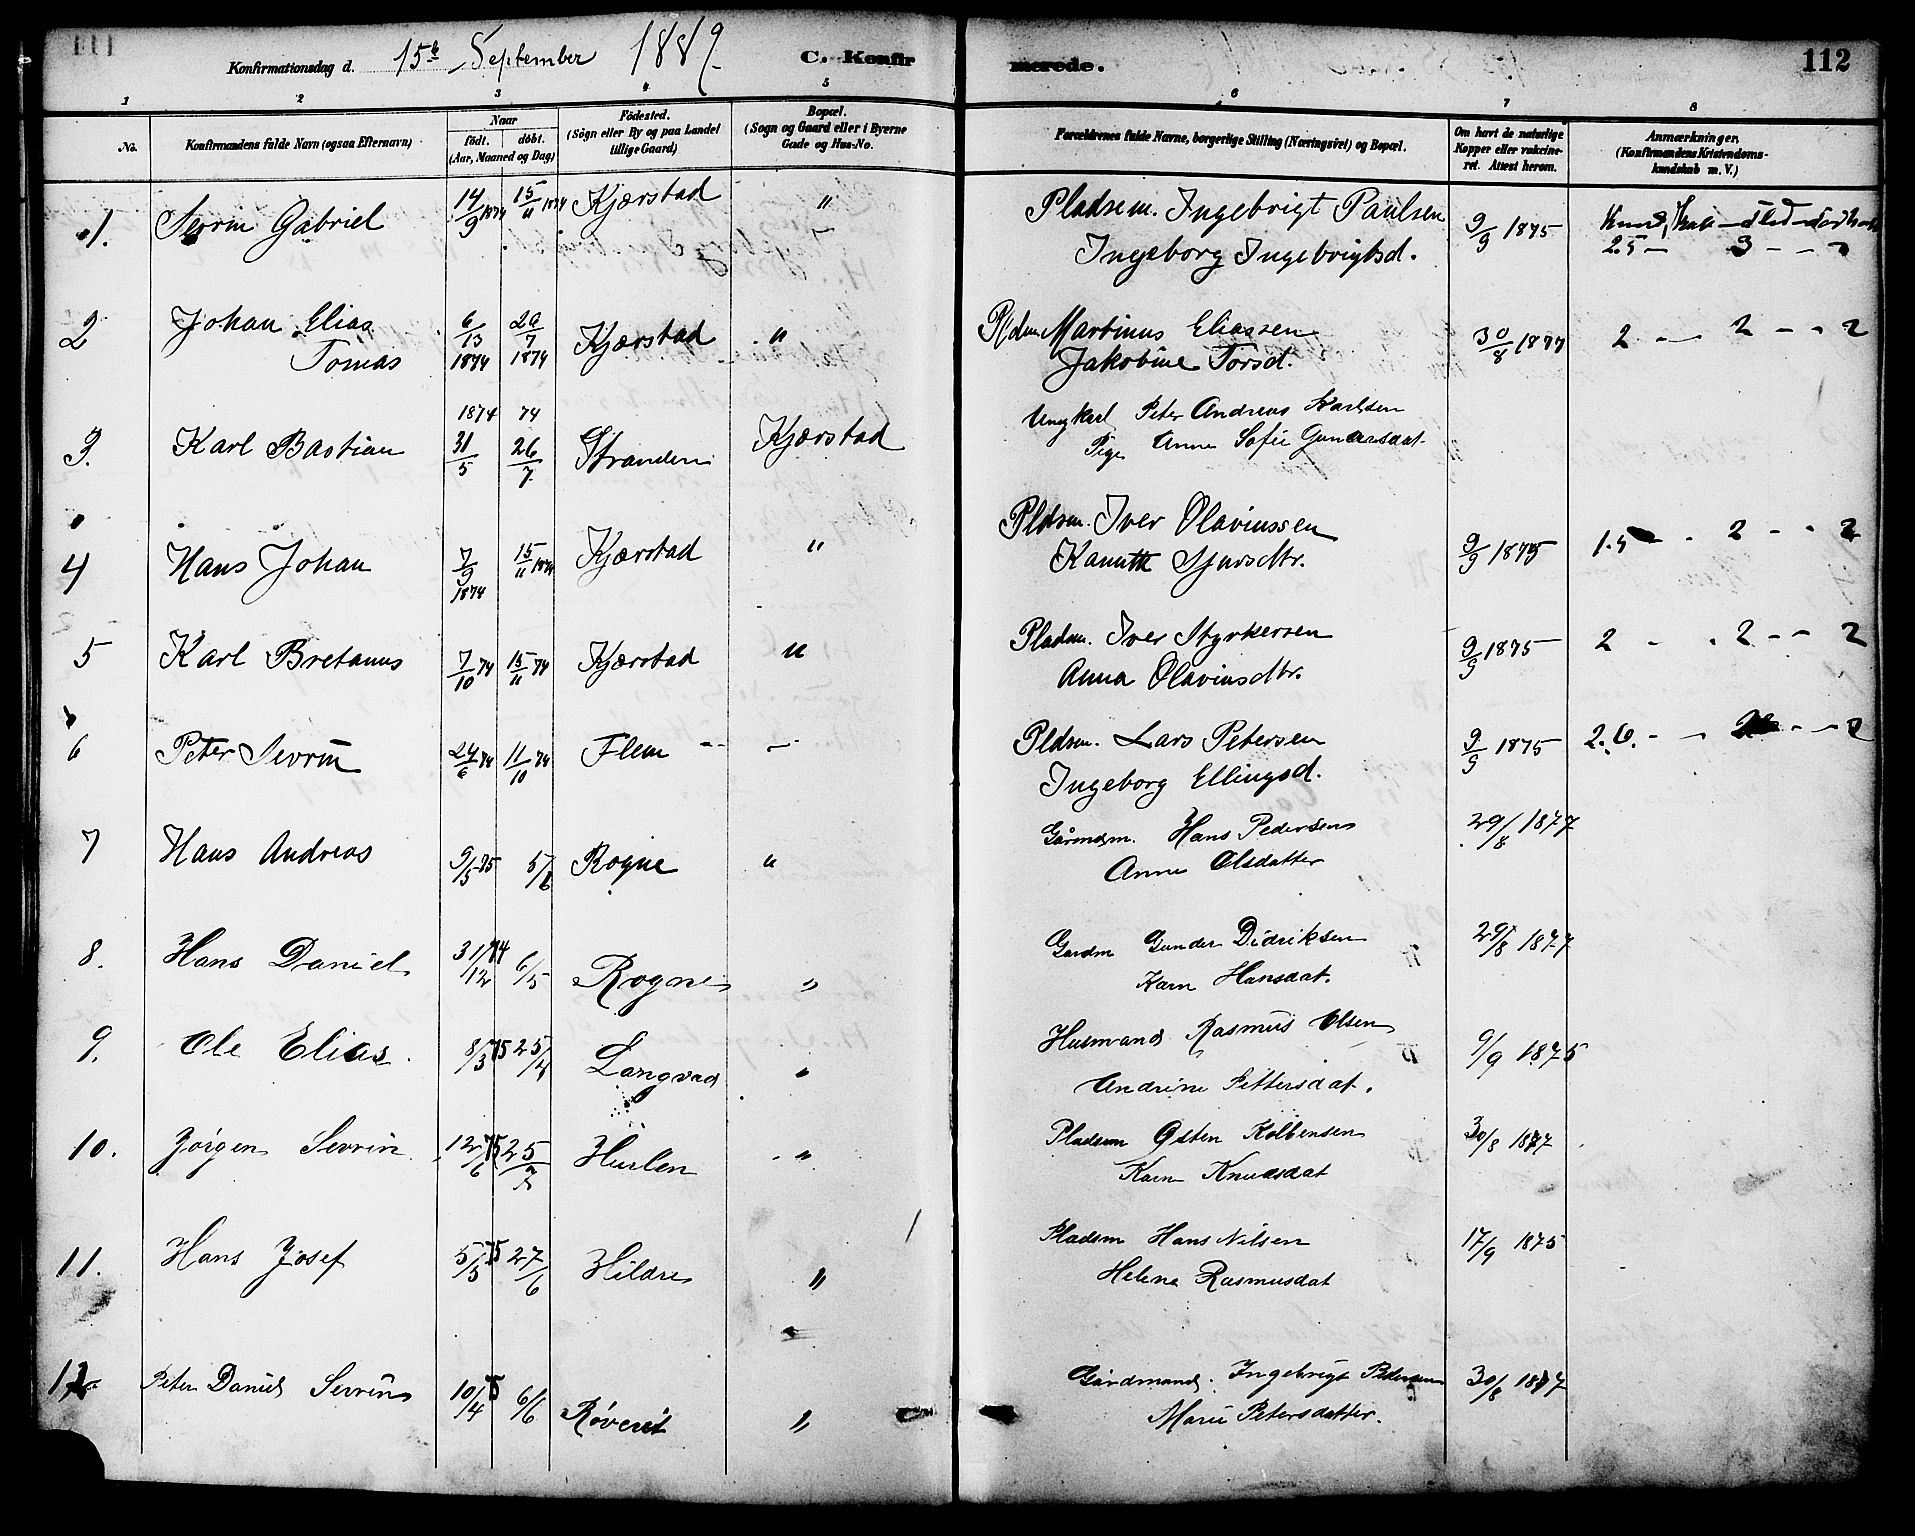 Konfirmationsdag d. 15de September 1889. C. Konfirmerede. 112
1 2 3 4 5 6 7 8
No. Konfirmandens fulde Navn (ogsaa Efternavn) Naar født. døbt. (Aar, Maaned og Dag) Fødested. (Sogn eller By og paa Landet tillige Gaard) Bopæl. (Sogn og Gaard eller i Byerne Gade og Hus-No. Forældrenes fulde Navne, borgerlige Stilling (Næringsvei) og Bopæl. Om havt de naturlige Kopper eller vakcineret. Attest herom. Anmærkninger. (Konfirmandens Kristendomskundskab m. V.)
1. Sevrin Gabriel 14/9 1874 15/11 1874 Kjærstad " Pladsem. Ingebrigt Paulsen 9/9 1875
Ingeborg Ingebrigtsd. 2.5 — 3 - - 2
2 Johan Elias 6/13 1874 29/7 1874 Kjærstad " Pldsm. Martinus Eliassen 30/8 1877 2 — 2 - - 2
Tomas Jakobine Torsd.
3. Karl Bastian 1874 31/5 74 26/7 Stranden Kjærstad Ungkarl Peter Andreas Karlsen
Pige Anne Sofie Gunarsdat
4 Hans Johan 7/9 1874 15/11 1874 Kjærstad " Pldsm. Iver Olaviussen 9/9 1875 1.5 - - 2 - - 2
Kanutte Sjursdtr.
5 Karl Bretanus 7/10 74 15/11 74 Kjærstad " Pladsm. Iver Styrkersen 9/9 1875 2 - . 2 - - 2
Anna Olaviusdtr.
6 Peter Sevrin 24/6 74 11/10 74 Flem -- — Pldsm. Lars Petersen 9/9 1875 2.6. - - 2 - - 2
Ingeborg Ellingsd.
7 Hans Andreas 9/5 75 5/6 Rogne " Gårmdm. Hans Pedersen 29/8 1877
Anne Olsdatter
8. Hans Daniel 31/12 74 6/5 Rogne " Gardm Gunder Didriksen 29/8 1877
Karn Hansdat.
9. Ole Elias. 8/3 75 25/4 Longvad " Husmand Rasmus Olsen 9/9 1875
Andrine Pettersdat.
10. Jørgen Sevrin 12/6 75 25/7 Huslen " Pladsm Østen Kolbensen 30/8 1877
Karn Knudsdat
11. Hans Josef 5/5 75 27/6 Hildre " Pladsm Hans Nilsen 17/9 1875
Helena Rasmusdat
12 Peter Daniel Sevrin 10/4 75 6/6 Røveret " Gårdmand. Ingebrigt Pedersen 30/8 1877
Marie Petersdatter.